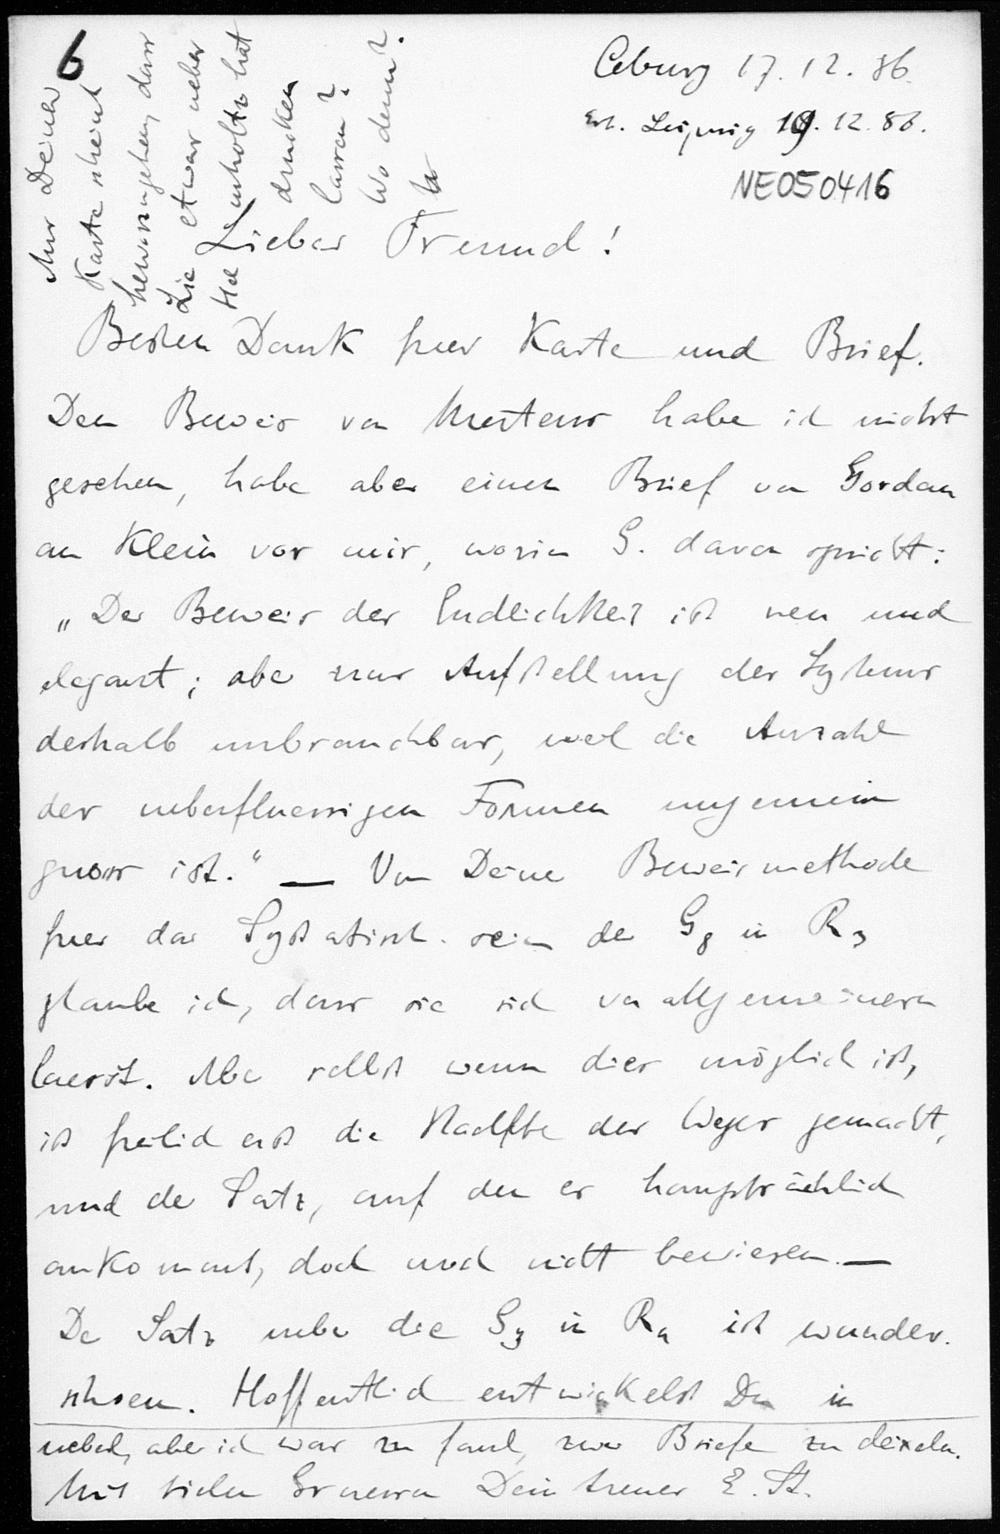 6
Coburg 17. 12. 86.
Erh. Leipzig 19. 12. 86.
NE050416
Aus Deiner
Karte scheint
hervorzugehen, dass
Lie etwas ueber
Helmholtz hat
drucken
lassen?
Wo denn?
Lieber Freund!
Besten Dank fuer Karte und Brief.
Den Beweis von Mertens habe ich nicht
gesehen, habe aber einen Brief von Gordan
an Klein vor mir, worin G. davon spricht:
„Der Beweis der Endlichkeit ist neu und
elegant; aber zur Aufstellung des Systems
deshalb unbrauchbar, weil die Anzahl
der ueberfluessigen Formen ungemein
gross ist.“ — Von Deine Beweismethode
fuer das Systatisch sein der G8 in R3
glaube ich, dass sie sich verallgemeinern
laesst. Aber selbst wenn dies möglich ist,
ist freilich erst die Haelfte des Weges gemacht,
und der Satz, auf den es hauptsächlich
ankommt, doch noch nicht bewiesen. —
Der Satz ueber die G3 in Rn ist wunder-
schoen. Hoffentlich entwickelst Du in
uebel, aber ich war zu faul, zwei Briefe zu dexeln.
Mit vielen Gruessen Dein treuer E. St.